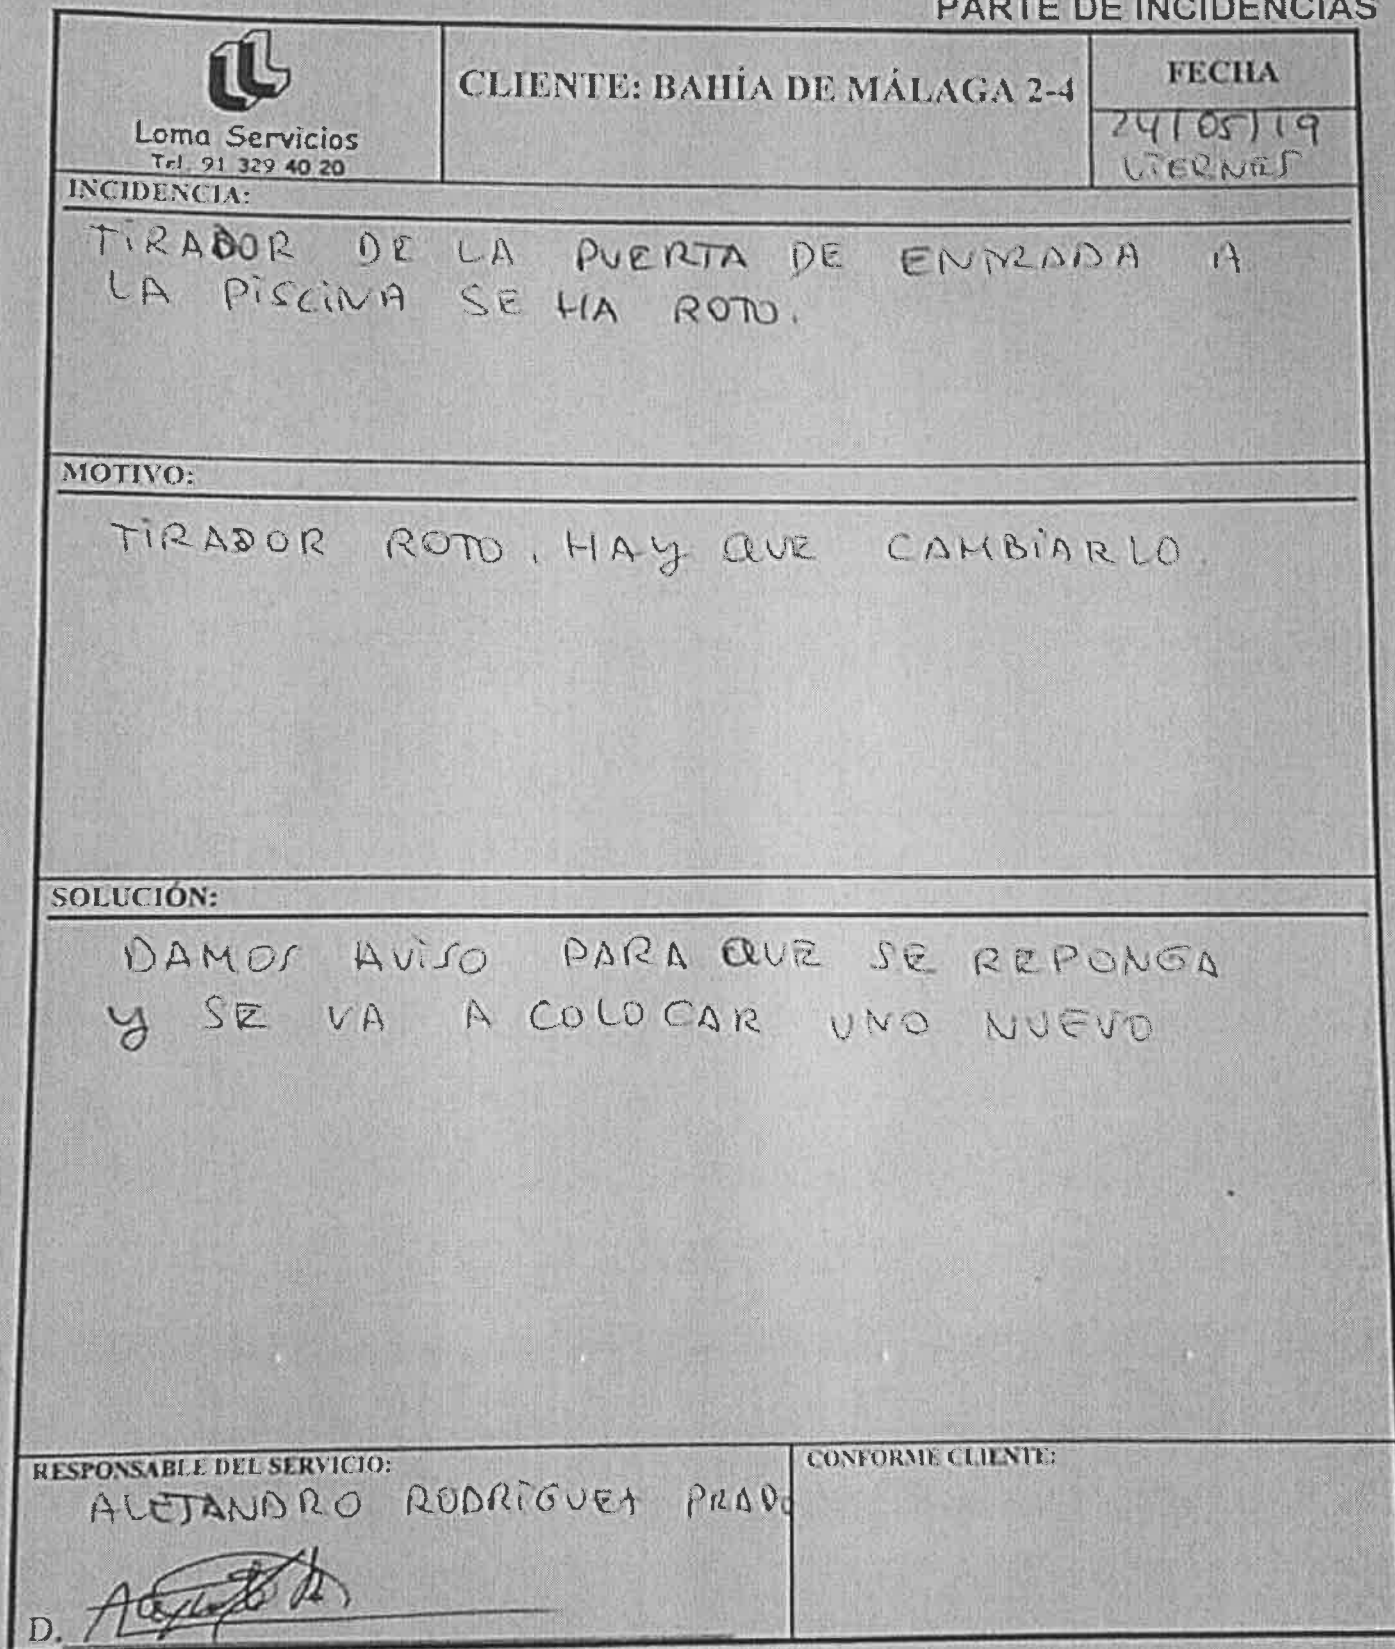 PARTE DE INCIDENCIAS
Loma Servicios
Tel. 91 329 40 20
CLIENTE: BAHÍA DE MÁLAGA 2-4
FECHA
24/05/19
VIERNES
INCIDENCIA:
TIRADOR DE LA PUERTA DE ENTRADA A
LA PISCINA SE HA ROTO.
MOTIVO:
TIRADOR ROTO. HAY QUE CAMBIARLO.
SOLUCIÓN:
DAMOS AVISO PARA QUE SE REPONGA
Y SE VA A COLOCAR UNO NUEVO
RESPONSABLE DEL SERVICIO:
ALEJANDRO RODRÍGUEZ PRADO
D.
CONFORME CLIENTE: